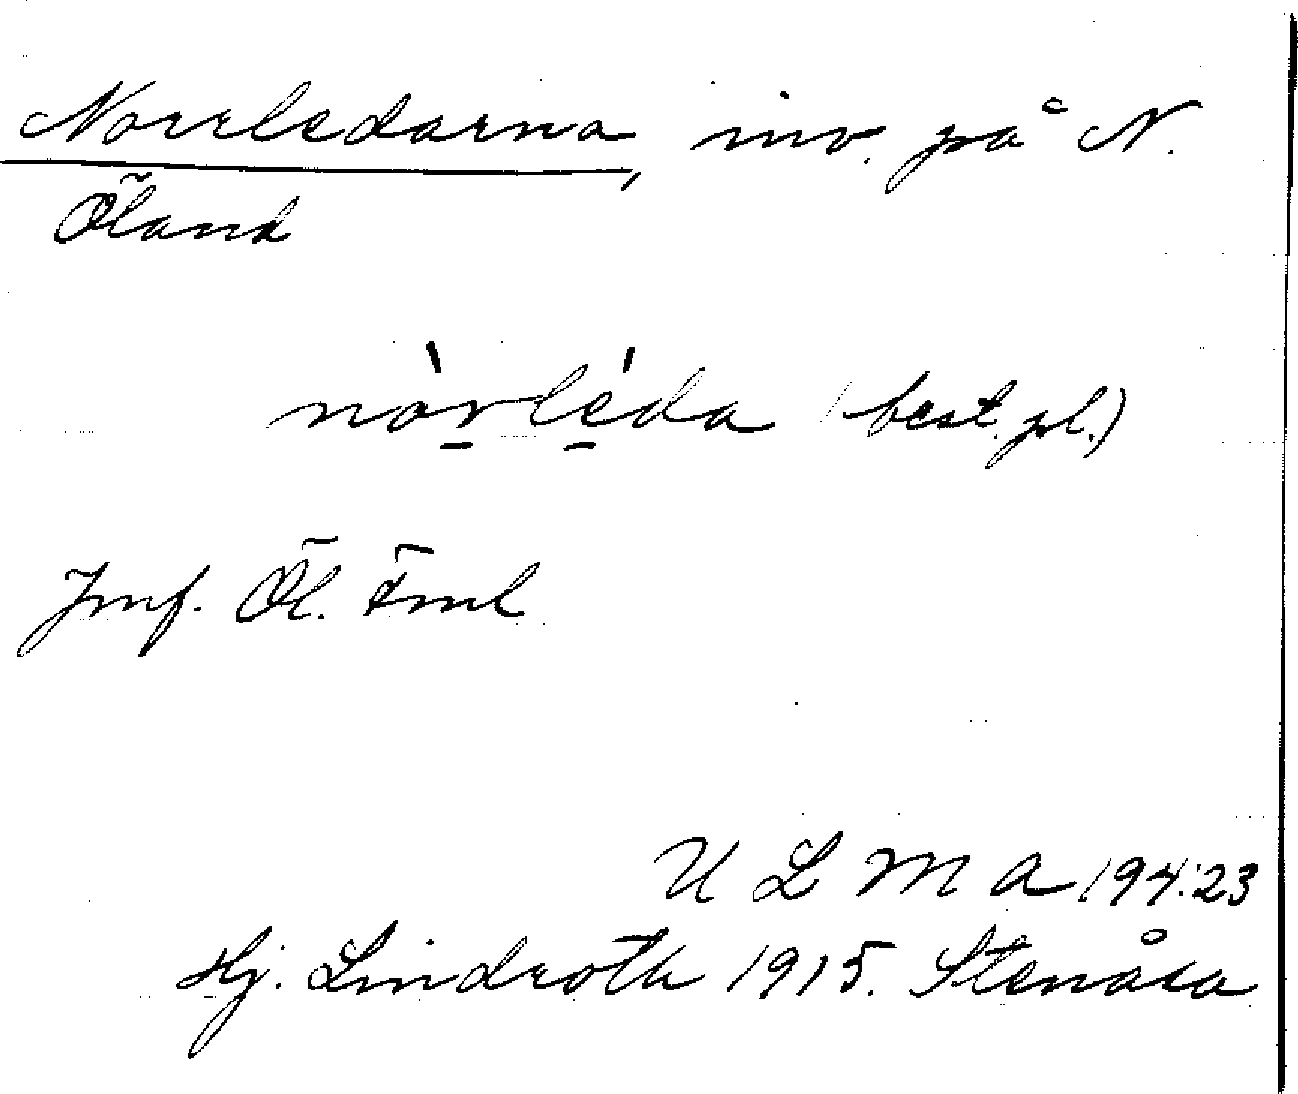 Norrledarna, inv. på N.
Öland
nòrléda (best. pl.)
Jmf. Öl. Fml
U L M A 194:23
Hj. Lindroth 1915. Stenåsa